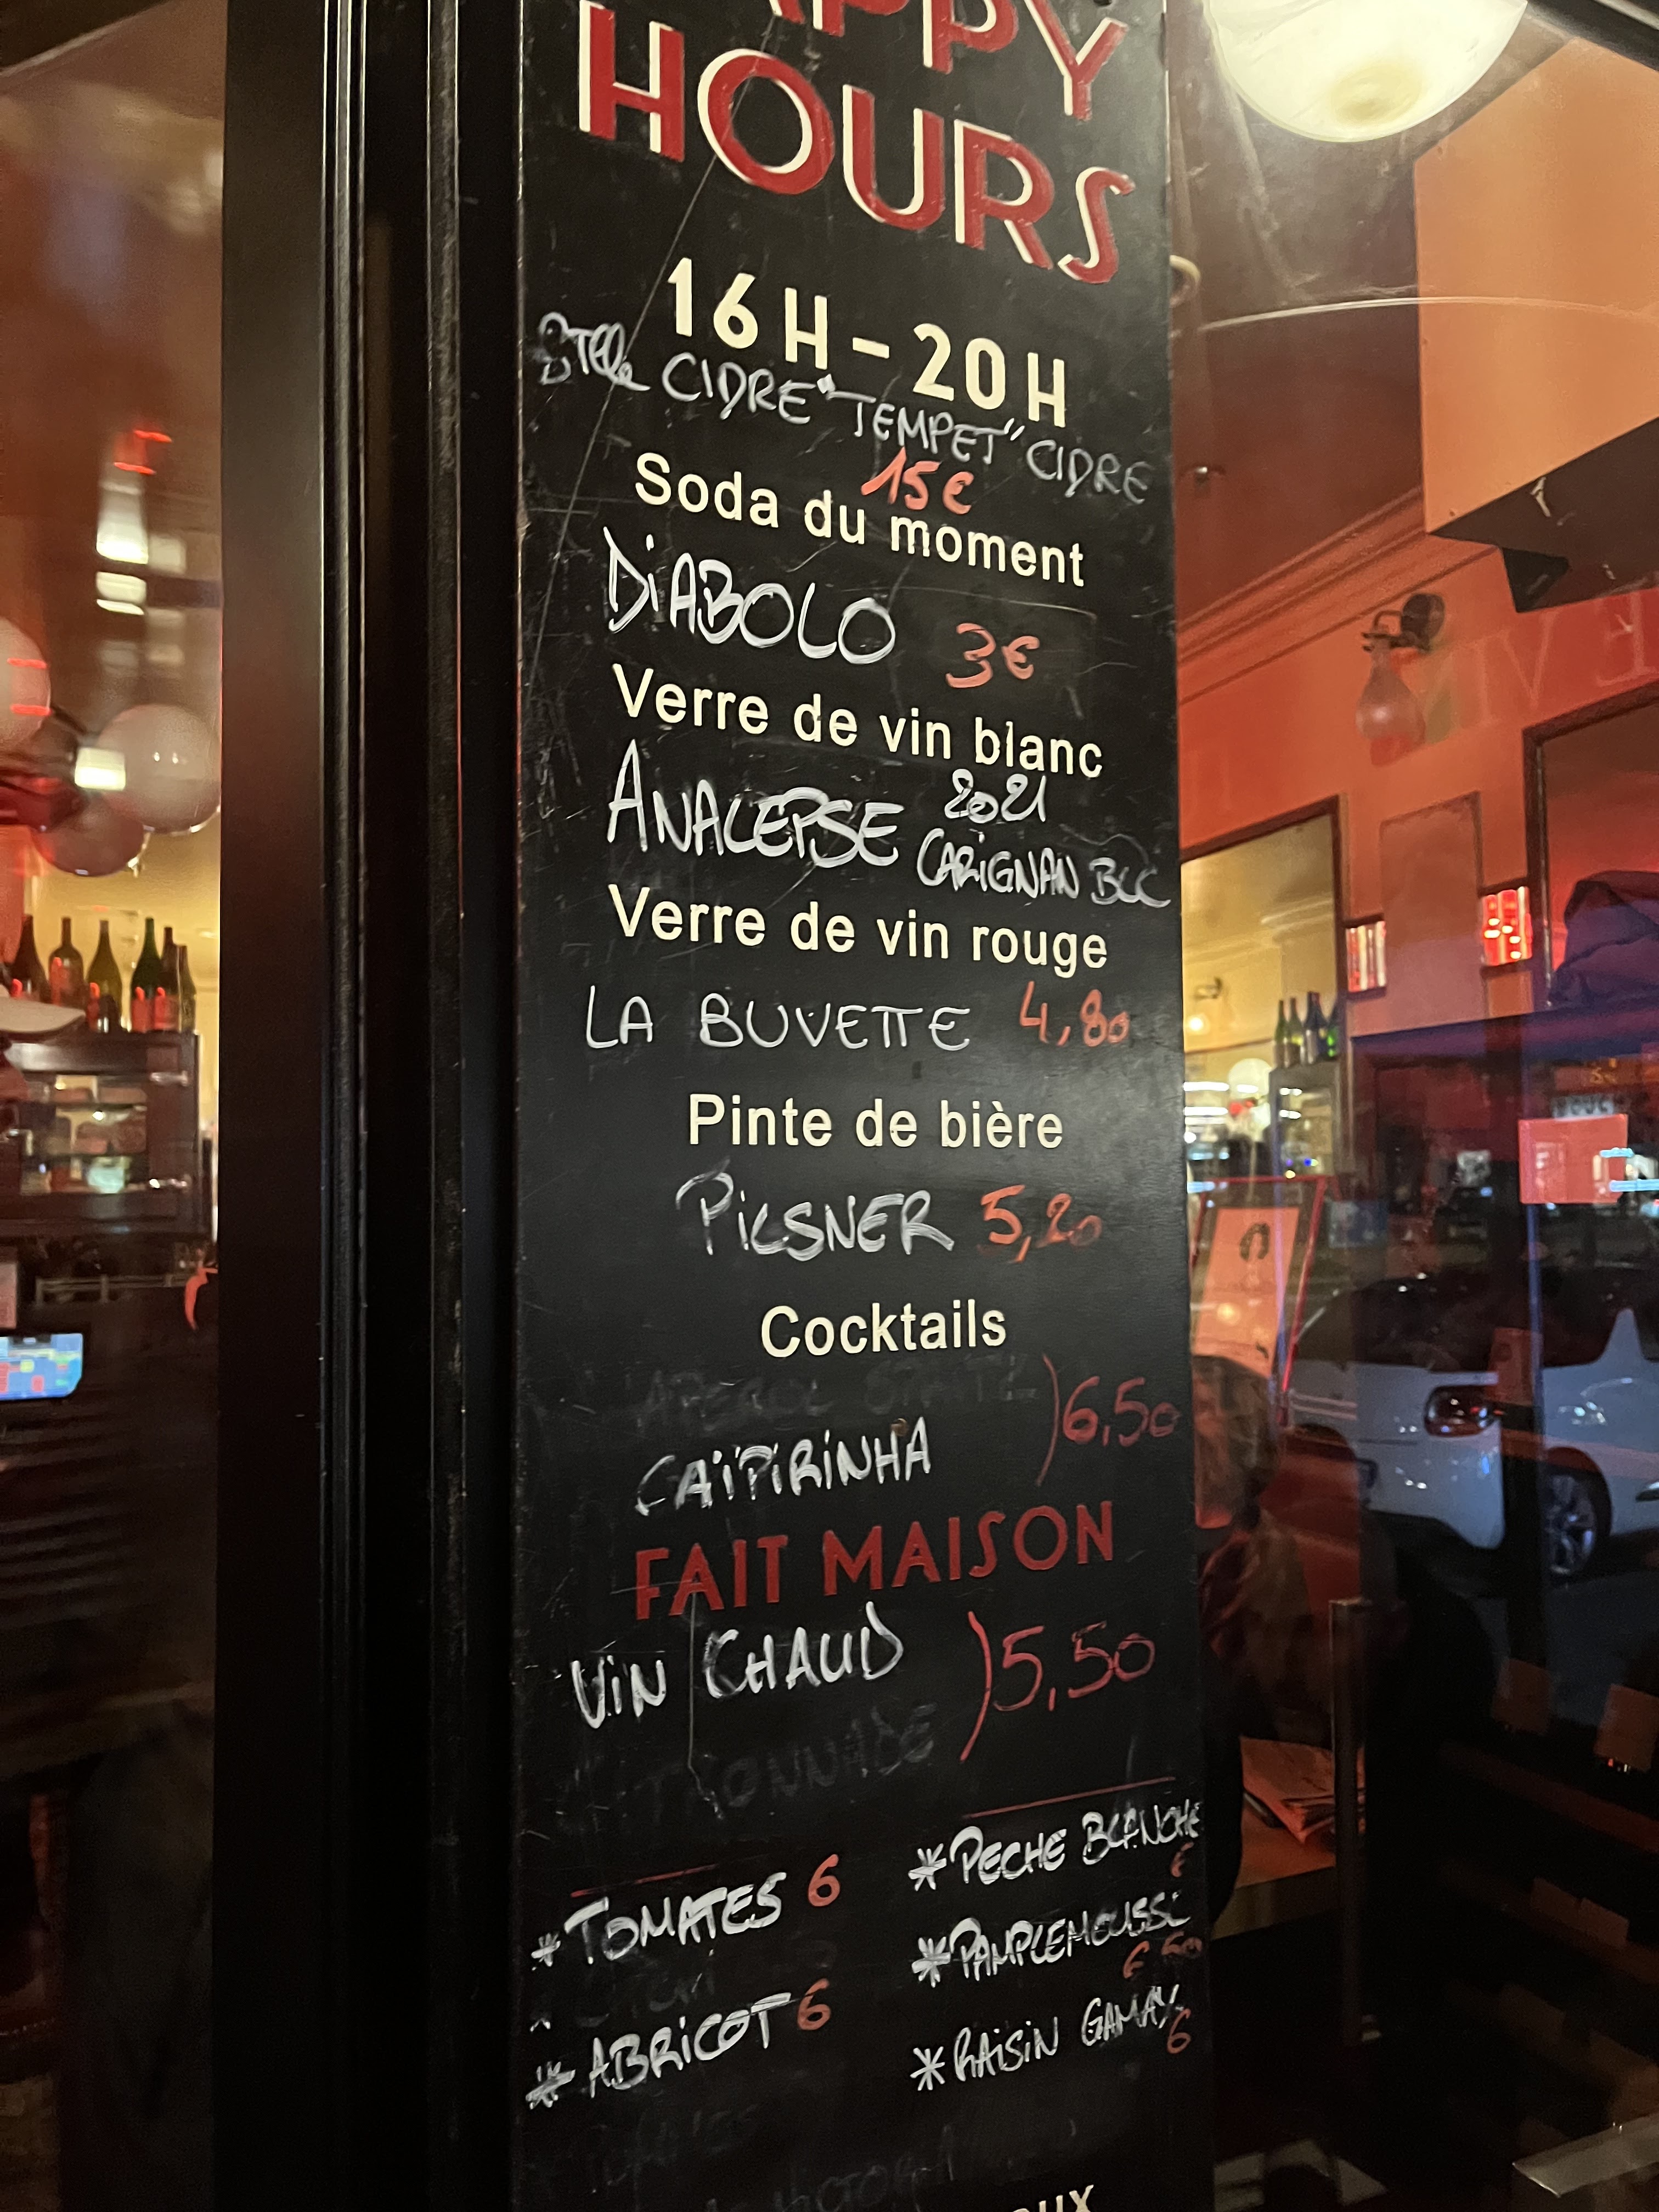 HOURS
16H-20H
CIDRE "TEMPET" CIDRE
15€
Soda du moment
DiABOLO 3€
Verre de vin blanc
ANALEPSE 2021
CARiGNAN BLC
Verre de vin rouge
LA BUVETTE 4,80
Pinte de bière
PiLSNER 5,20
Cocktails
CAïPiRiNHA )6,50
FAIT MAISON
ViN CHAUD )5,50
*TOMATES 6
*ABRiCOT 6
*PECHE BLANCHE
6
*PAMPLEMOUSSE
6 50
*RAiSiN GAMAY
6